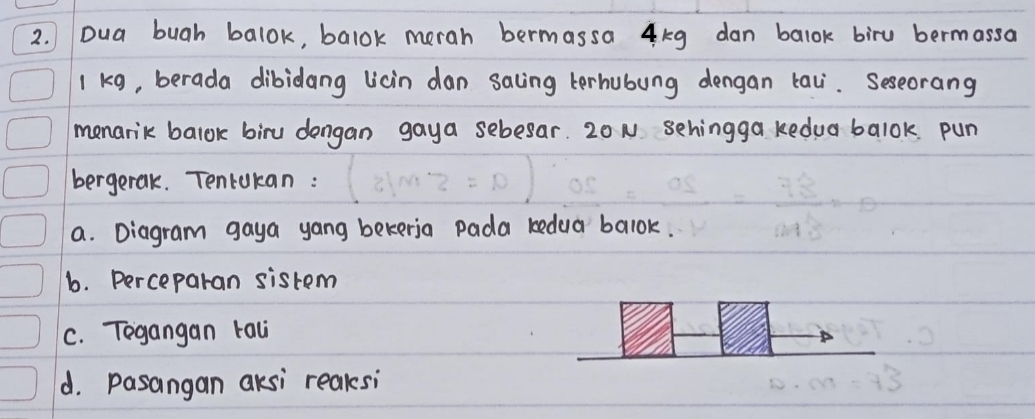 2. Dua buah balok, balok merah bermassa 4kg dan balok biru bermassa
1 kg, berada dibidang licin dan saling terhubung dengan tali. Seseorang
menarik balok biru dengan gaya sebesar. 20 N sehingga kedua balok pun
bergerak. Tentukan :
a. Diagram gaya yang bekerja pada kedua balok.
b. Percepatan sistem
c. Tegangan tali
d. Pasangan aksi reaksi